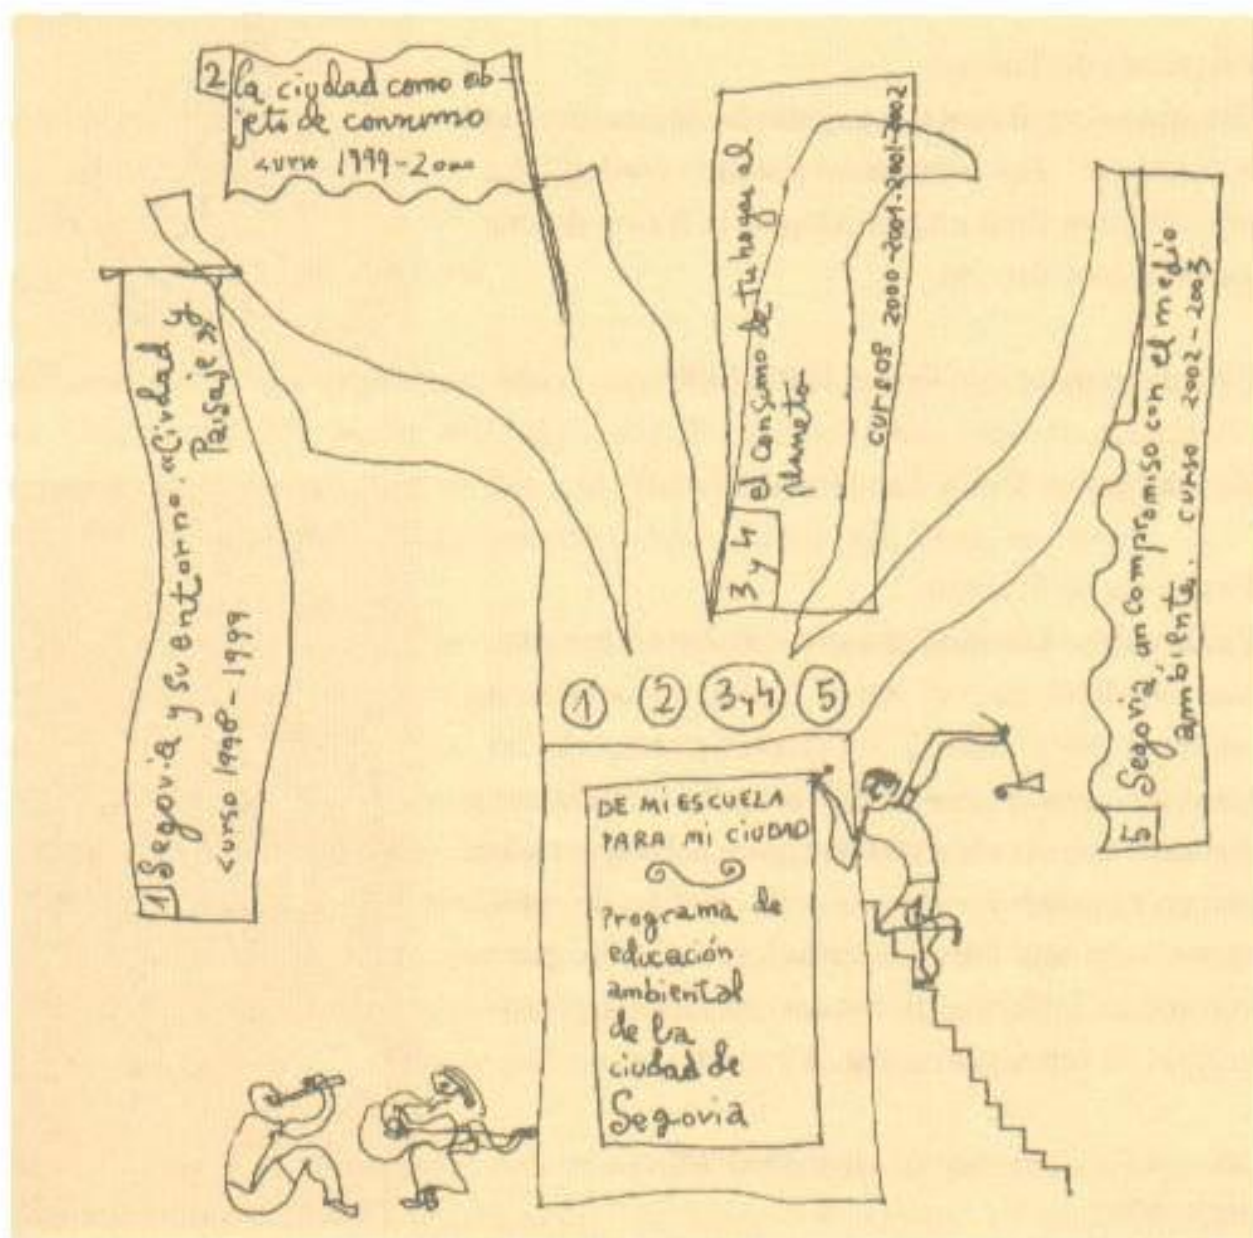 2 La ciudad como ob-
jeto de consumo
curso 1999-2000
1 Segovia y su entorno. "Ciudad y
Paisaje"
curso 1998-1999
3 y 4 el consumo de tu hogar al
planeta
cursos 2000-2001-2001-2002
5 Segovia, un compromiso con el medio
ambiente. curso 2002-2003
1 2 3 y 4 5
DE MI ESCUELA
PARA MI CIUDAD
Programa de
educación
ambiental
de la
ciudad de
Segovia